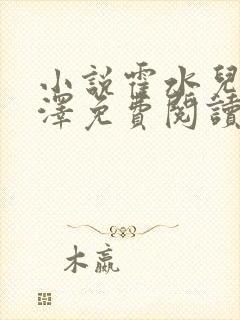 小說霍水兒
澤免費閱讀
木嬴